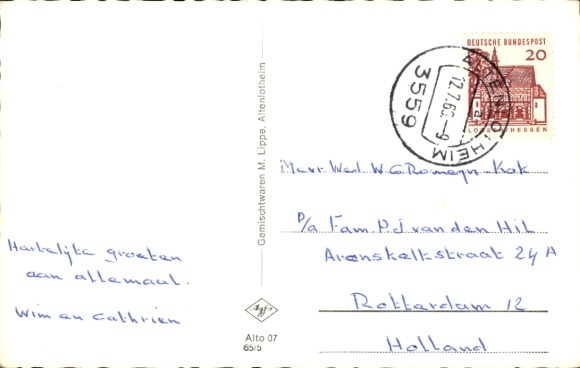 Hartelijke groeten
aan allemaal.
Wim en Cathrien
Gemischtwaren M. Lippe, Altenlotheim
Agfa
Alto 07
65/5
DEUTSCHE BUNDESPOST
20
LORSCH/HESSEN
3559
12.7.66.-9
Mevr Wed. W G Romeyn-Kok
P/a Fam. P.J van den Hil
Aronskelkstraat 24 A
Rotterdam 12
Holland